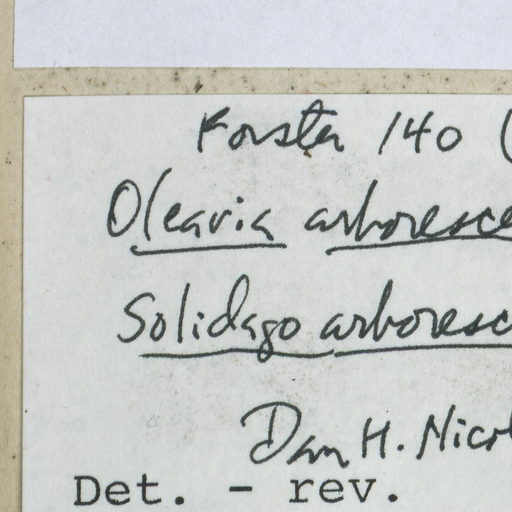 Forster 140 (
Olearia arboresce
Solidago arboresc
Dan H. Nicol
Det. - rev.